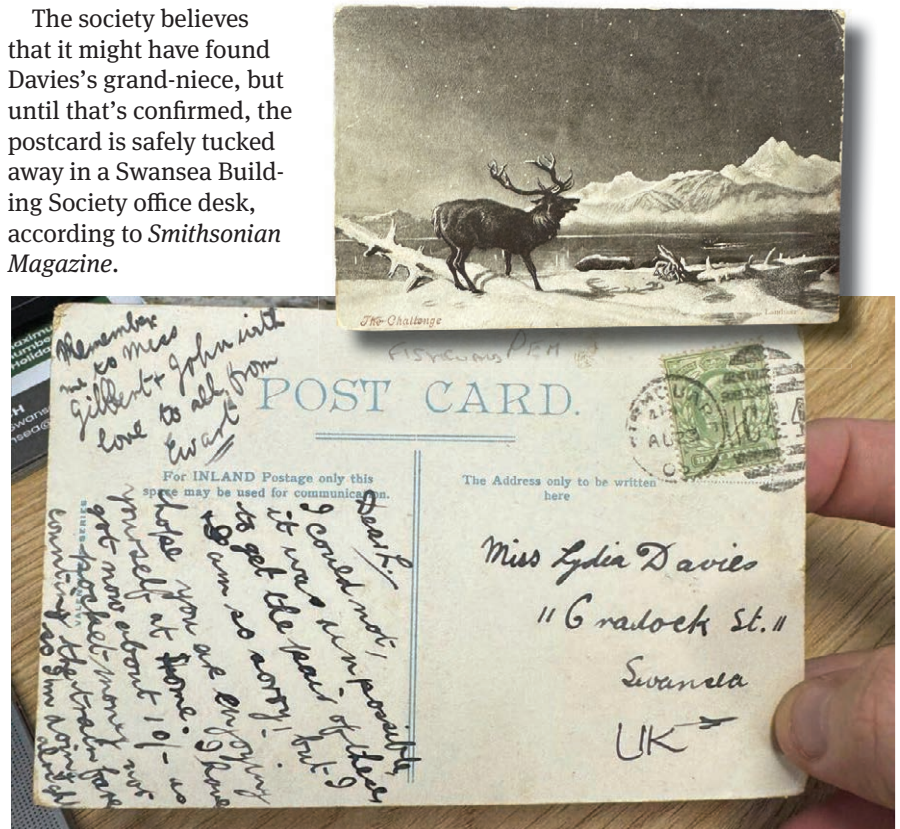 The society believes
that it might have found
Davies's grand-niece, but
until that's confirmed, the
postcard is safely tucked
away in a Swansea Build-
ing Society office desk,
according to Smithsonian
Magazine.
The Challenge
Remember
me to Miss
Gilbert & John with
love to all from
Ewart
FISHGUARD PEM
POST CARD.
For INLAND Postage only this
space may be used for communication.
The Address only to be written
here
Dear L.
I could not,
it was impossible,
to get the pair of these
& I am so sorry! but I
hope you are enjoying
yourself at home. I have
got now about 10/- as
pocket-money nor
counting the train fare
so I'm doing
alright
Miss Lydia Davies
"Cradock St."
Swansea
UK